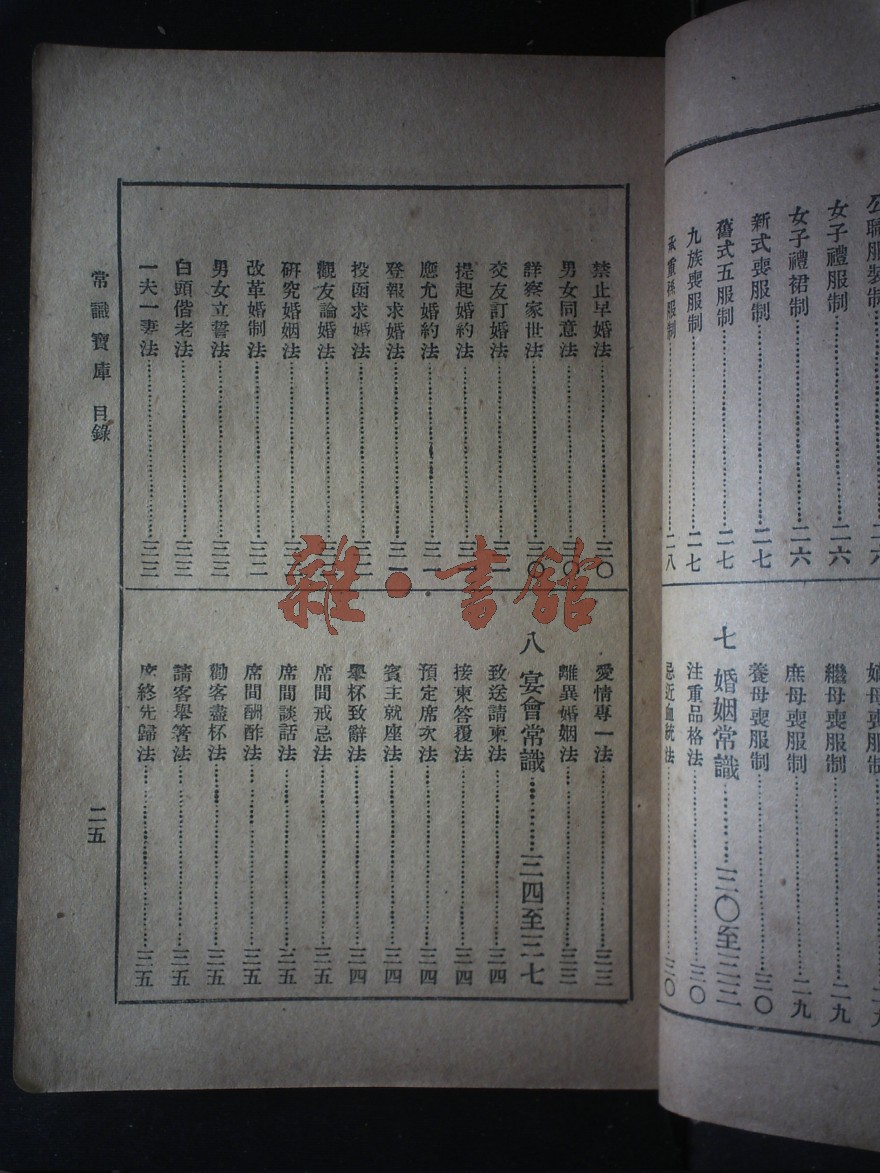 公職服裝制……二六
女子禮服制……二六
女子禮裙制……二六
新式喪服制……二七
舊式五服制……二七
九族喪服制……二七
承重孫服制……二八
母喪服制……二九
繼母喪服制……二九
庶母喪服制……二九
養母喪服制……三〇
七 婚姻常識……三〇至三三
注重品格法……三〇
忌近血統法……三〇
禁止早婚法……三〇
男女同意法……三〇
詳察家世法……三〇
交友訂婚法……三一
提起婚約法……三一
應允婚約法……三一
登報求婚法……三一
投函求婚法……三二
觀友論婚法……三二
研究婚姻法……三二
改革婚制法……三二
男女立誓法……三三
白頭偕老法……三三
一夫一妻法……三三
愛情專一法……三三
離異婚姻法……三三
八 宴會常識……三四至三七
致送請柬法……三四
接柬答覆法……三四
預定席次法……三四
賓主就座法……三四
舉杯致辭法……三四
席間戒忌法……三五
席間談話法……三五
席間酬酢法……三五
勸客盡杯法……三五
請客舉箸法……三五
席終先歸法……三五
常識寶庫 目錄
二五
雜·書館